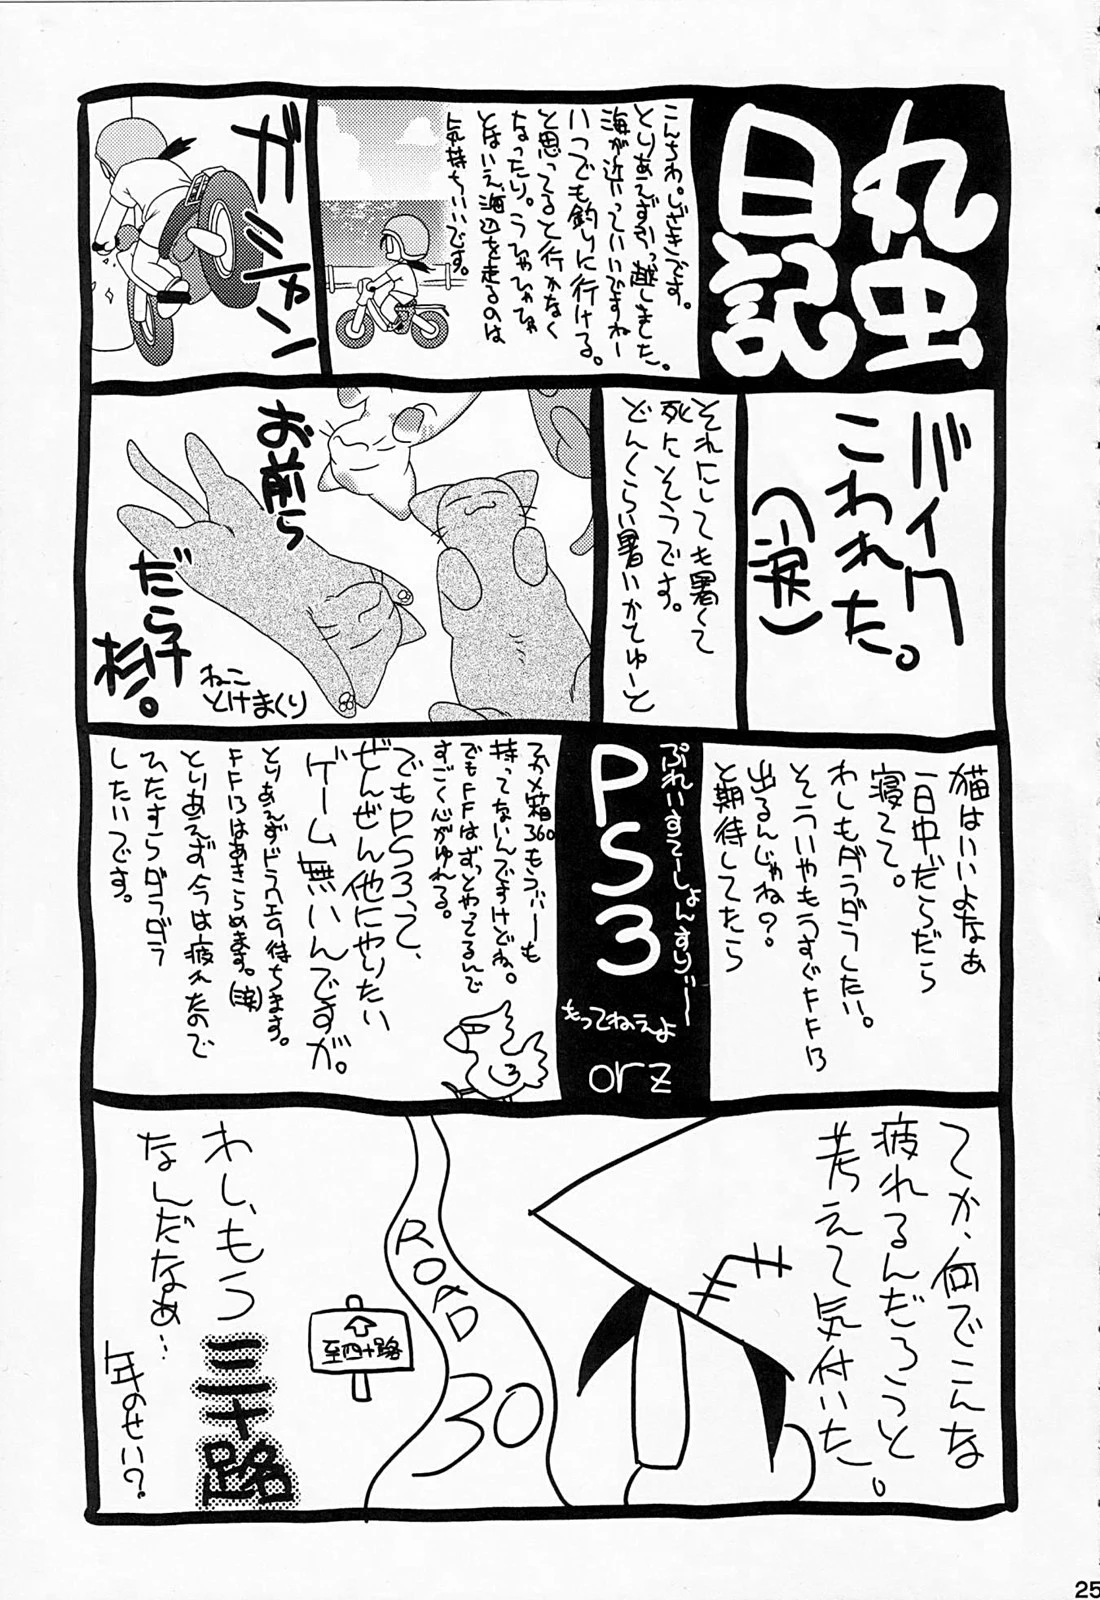 丸虫
日記
こんちわ。しざきです。
とりあえず引っ越しました。
海が近っていいですねー
いつでも釣りに行ける。
と思ってると行かなく
なったり。うひゃひゃひゃ
とはいえ海辺を走るのは
気持ちいいです。
ガシャン
バイク
こわれた。
(泣)
それにしても暑くて
死にそうです。
どんくらい暑いかてゅーと
お前ら
だら子
杉。
ねこ
とけまくり
猫はいいよなぁ
一日中だらだら
寝てて。
わしもダラダラしたい。
そういやもうすぐFF13
出るんじゃね?
と期待してたら
ぷれいすてーしょんすりぃー
PS3
もってねぇよ
orz
てか×箱360もうぃーも
持ってないんですけどね。
でもFFはずっとやってるんで
すごく心がゆれる。
でもPS3って、
ぜんぜん他にやりたい
ゲーム無いんですが。
とりあえずドラクエ9待ちます。
FF13はあきらめます。(涙)
とりあえず今は疲れたので
ひたすらダラダラ
したいです。
てか、何でこんな
疲れるんだろうと
考えて気付いた。
ROAD
30
至四十路
わし、もう
三十路
なんだなぁ…
年のせい?
25